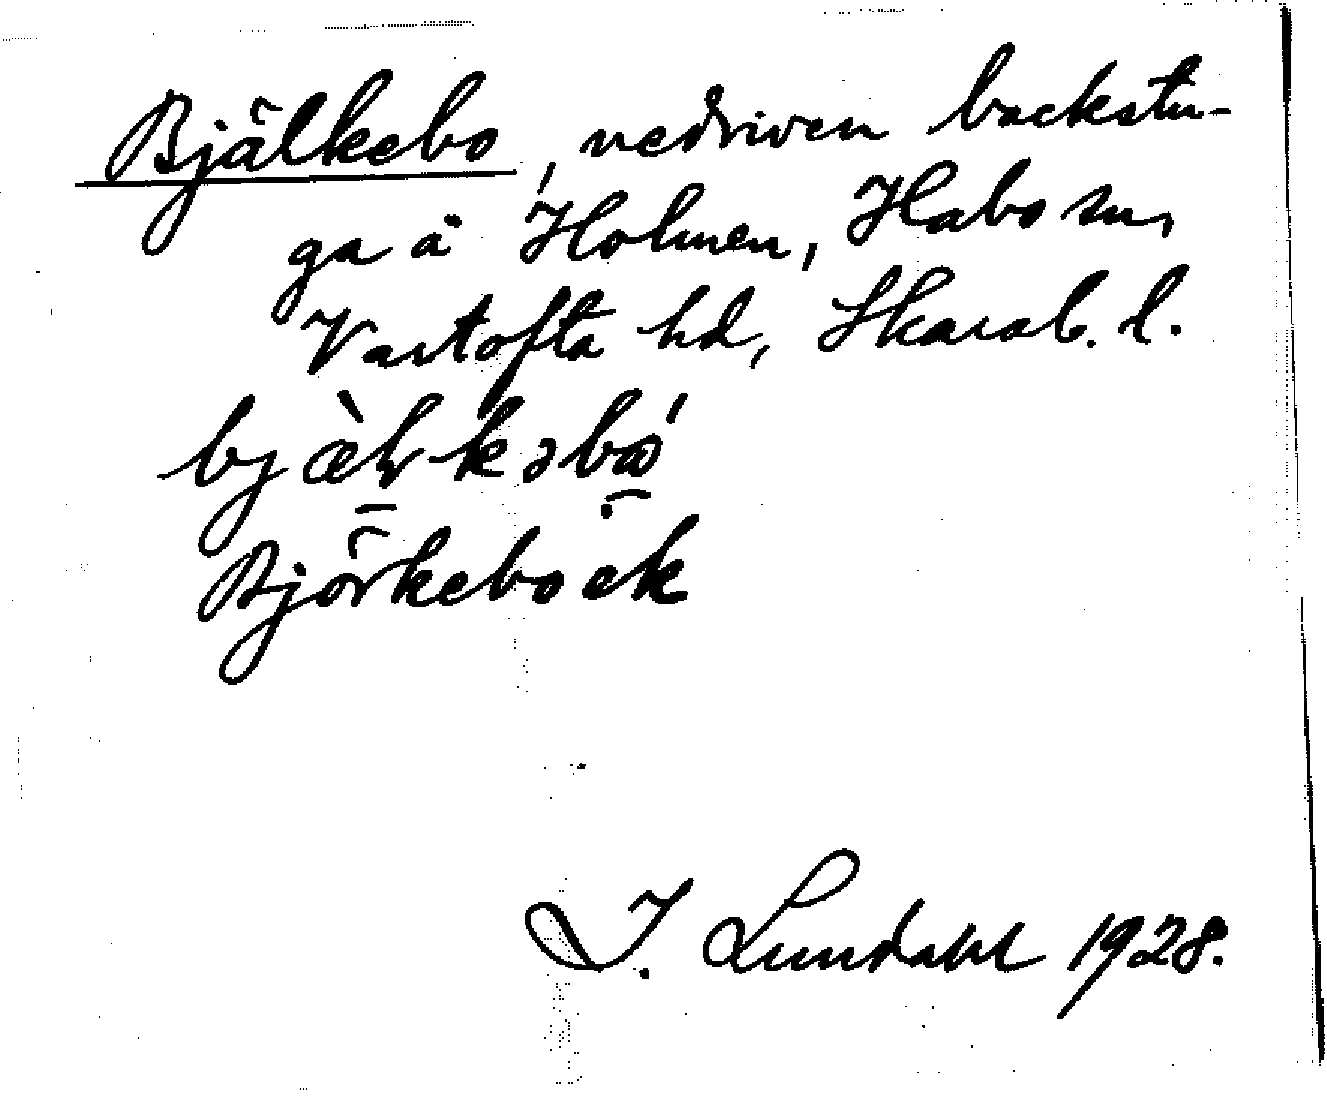 Bjälkebo, nedriven backstu-
ga å Holmen, Habo sn,
Vartofta hd, Skarab. l.
Björkeback
I. Lundahl 1928.